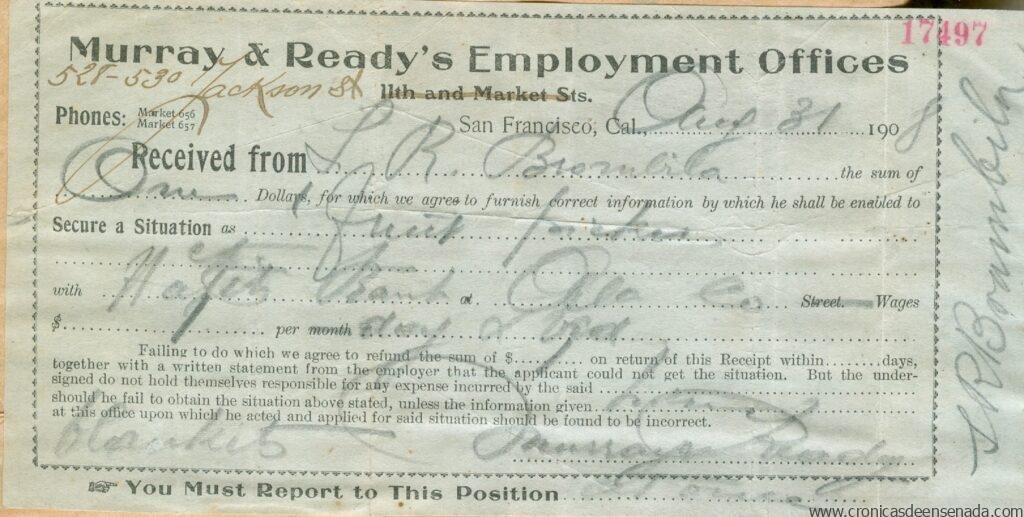 17497
Murray & Ready's Employment Offices
528-530 Jackson St 11th and Market Sts.
Phones: Market 656
Market 657
San Francisco, Cal., Aug 31 1908
Received from L. R. Brombila the sum of
One Dollars, for which we agree to furnish correct information by which he shall be enabled to
Secure a Situation as fruit picker
with Bank at Co Street. Wages
$ per month day & Bord
Failing to do which we agree to refund the sum of $ on return of this Receipt within days,
together with a written statement from the employer that the applicant could not get the situation. But the under-
signed do not hold themselves responsible for any expense incurred by the said
should he fail to obtain the situation above stated, unless the information given
at this office upon which he acted and applied for said situation should be found to be incorrect.
blankets Murray & Ready
You Must Report to This Position
www.cronicasdeensenada.com